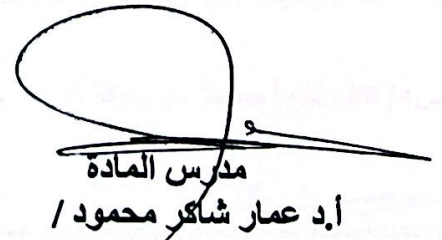 مدرس المادة
أ.د عمار شاكر محمود /